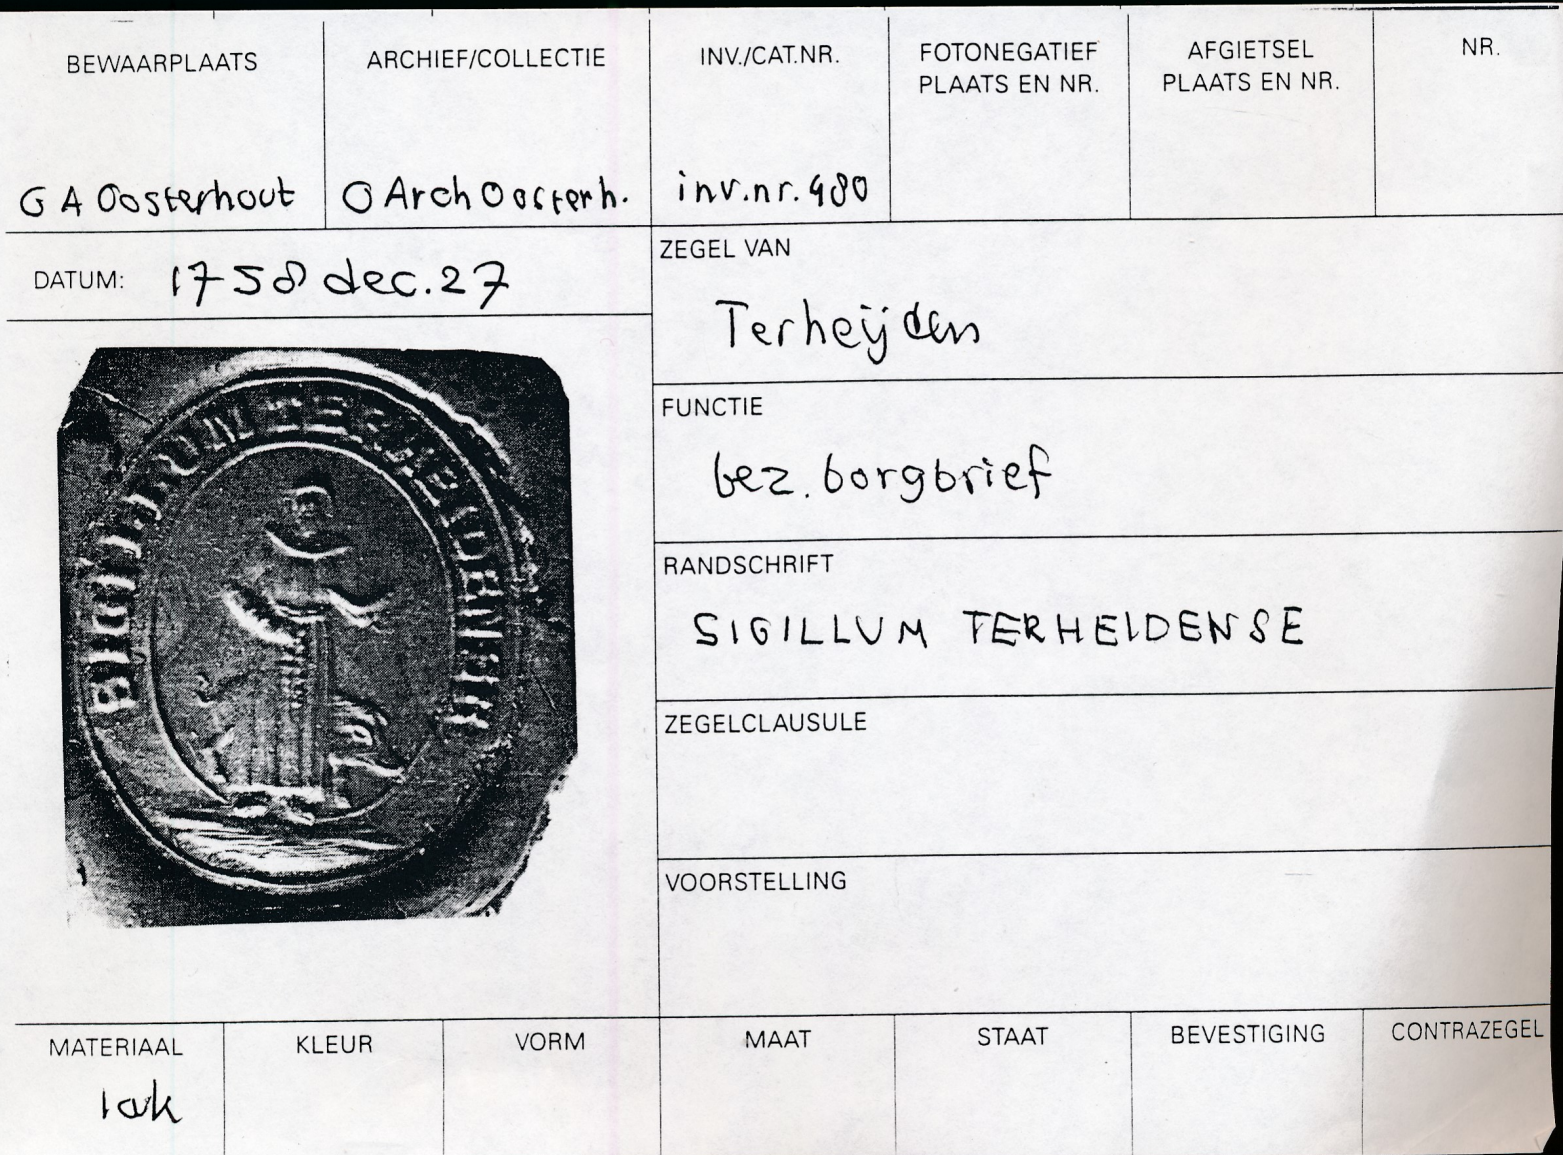 BEWAARPLAATS
ARCHIEF/COLLECTIE
INV./CAT.NR.
FOTONEGATIEF
PLAATS EN NR.
AFGIETSEL
PLAATS EN NR.
NR.
G A Oosterhout
O Arch Oosterh.
inv.nr. 480
DATUM: 1758 dec. 27
ZEGEL VAN
Terheijden
FUNCTIE
bez. borgbrief
RANDSCHRIFT
SIGILLUM TERHEIDENSE
ZEGELCLAUSULE
VOORSTELLING
MATERIAAL
KLEUR
VORM
MAAT
STAAT
BEVESTIGING
CONTRAZEGEL
lak